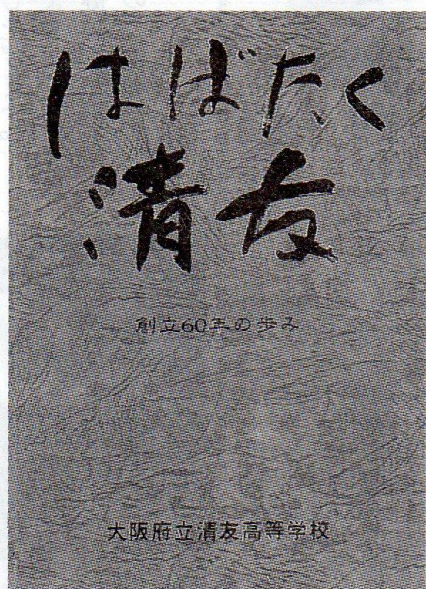 はばたく
清友
創立60年の歩み
大阪府立清友高等学校